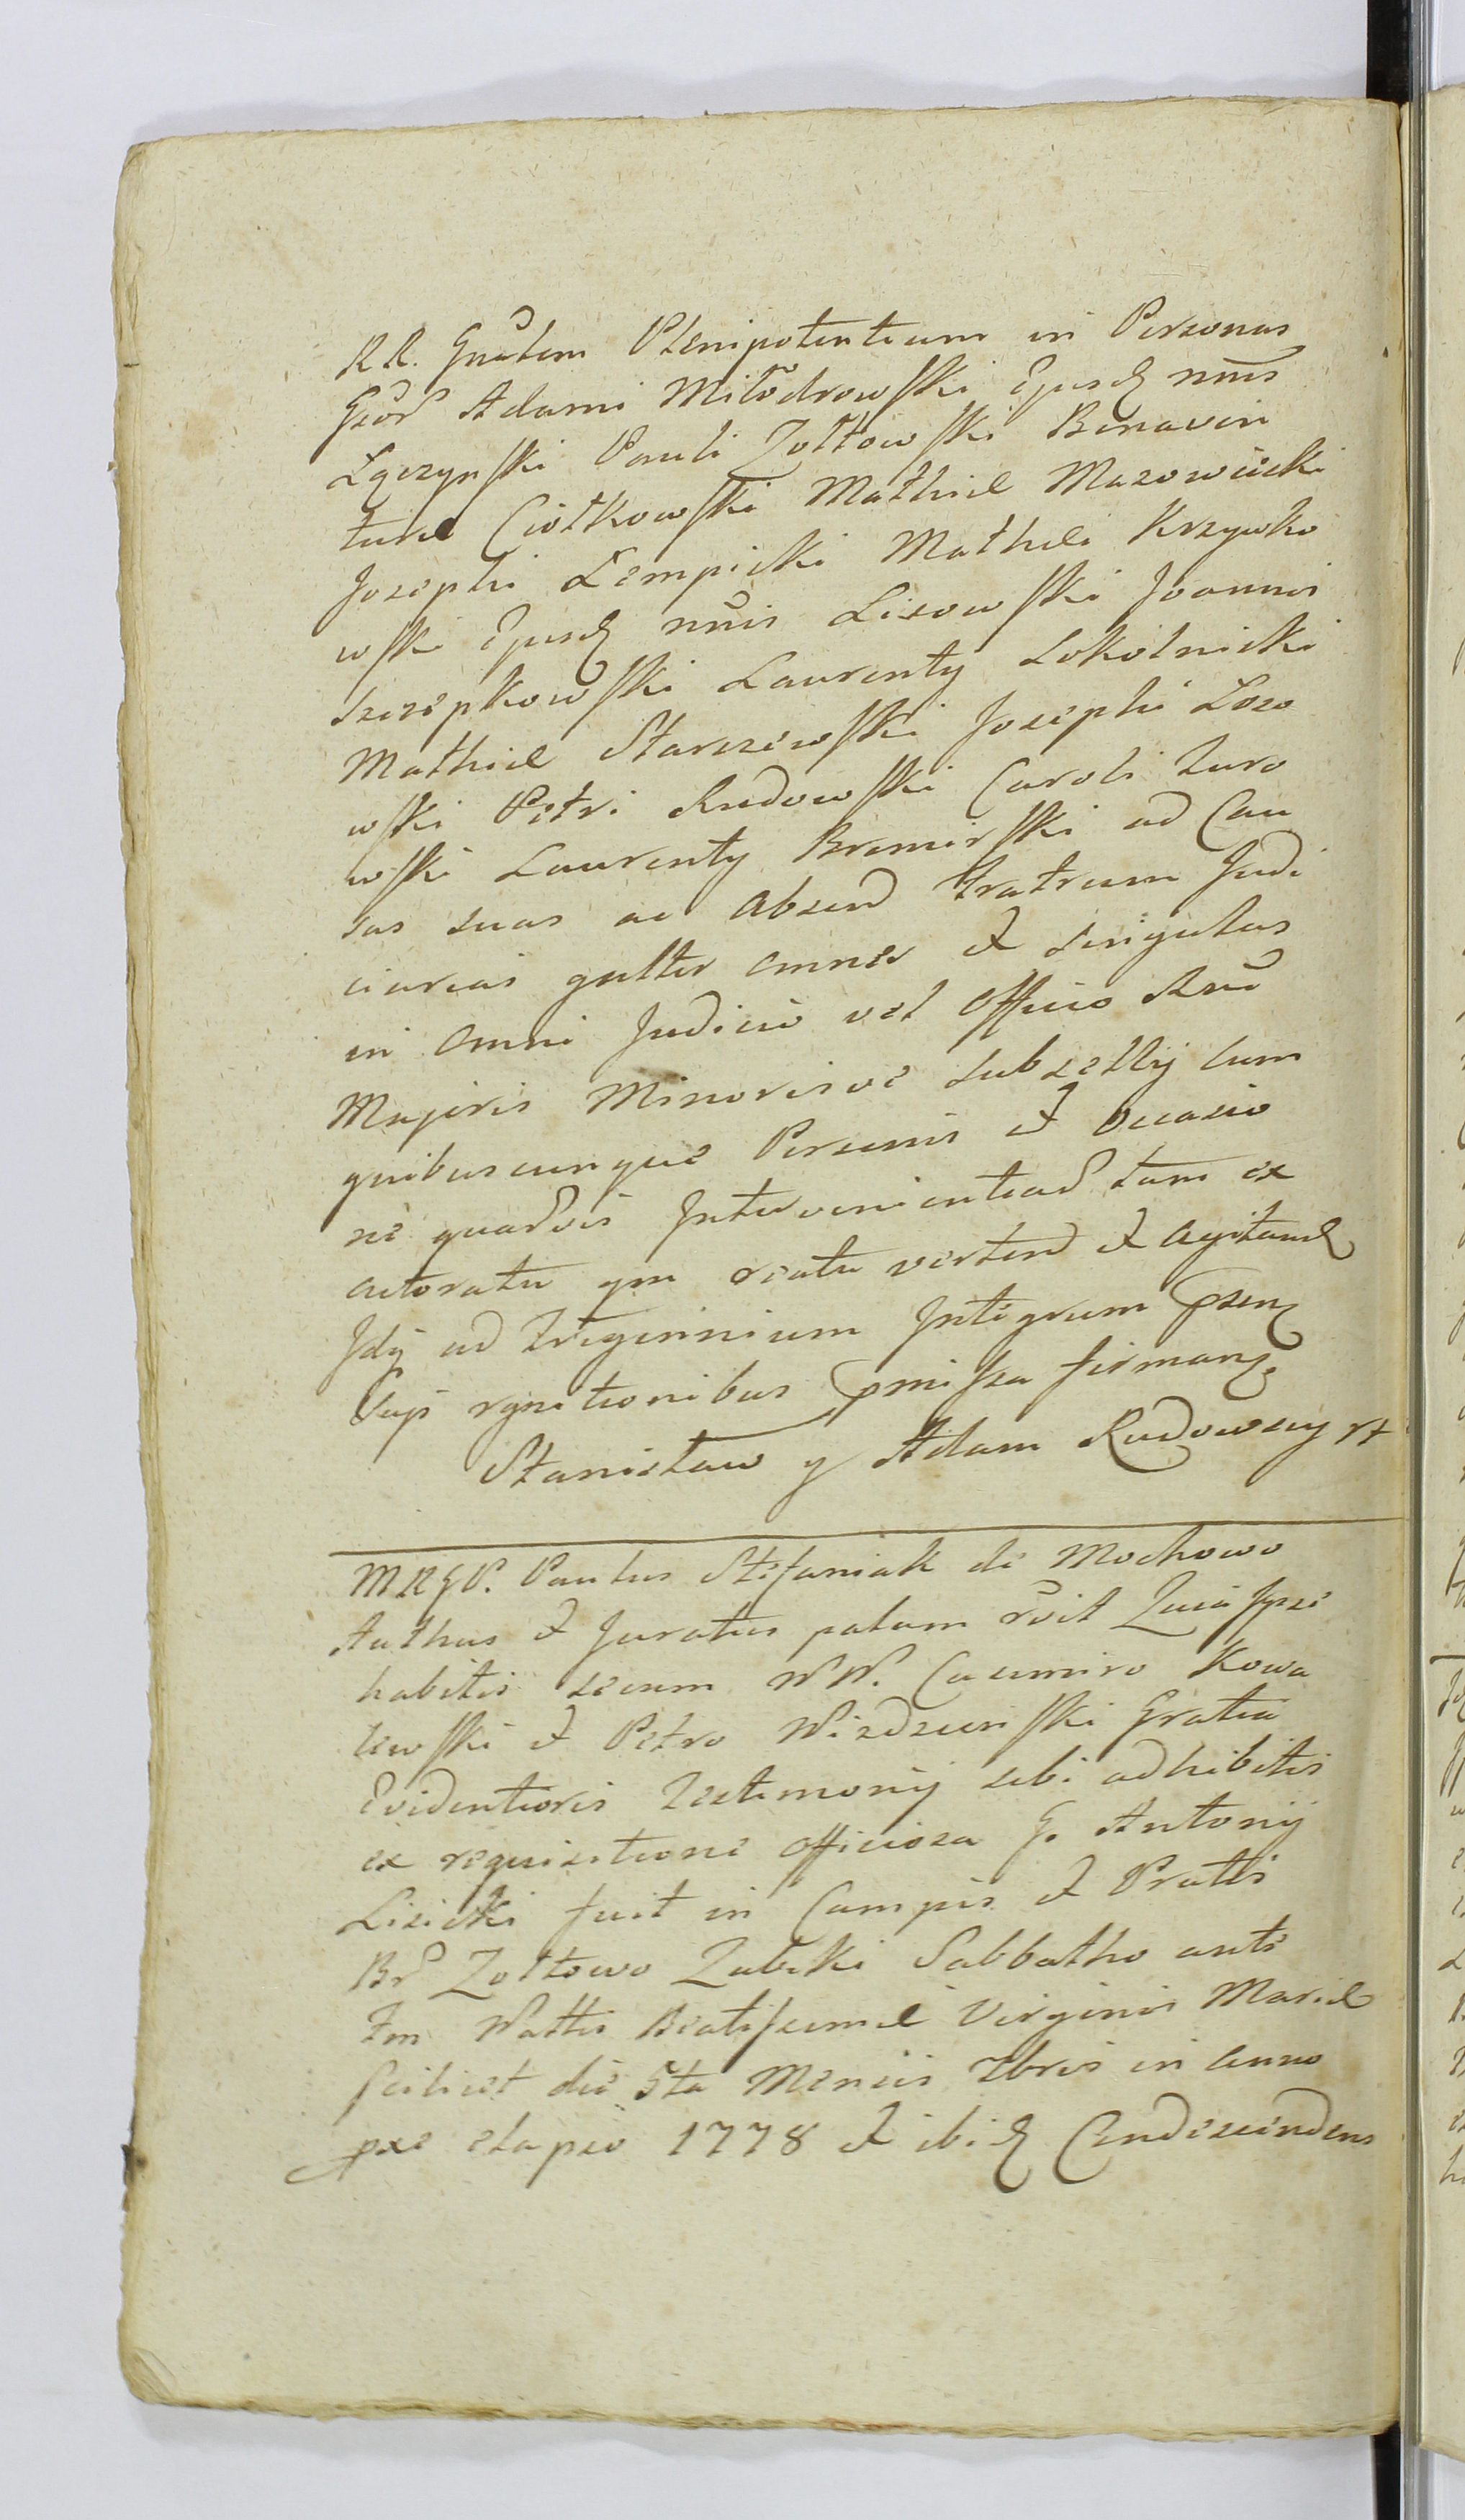 RR. Gnalem Plenipotentium in Personas
Gsor Adami Miłodrowski Ejusd nnis
Łączynski Pauli Zołtowski Bonaven
turæ Ciołkowski Mathiæ Mazowiecki
Josephi Łempicki Mathæi Krzywko
wski Ejusd nnis Lisowski Joannis
Szczepkowski Laurenty Sokolnicki
Mathiæ Starczewski Josephi Łoso
wski Petri Rudowski Caroli Zuro
wski Laurenty Bromirski ad Cau
sas suas ac absend fratrum Judi
ciarias gnlter omnes et singulas
in omni Judicio vel officio Rni
Majoris Minorisve subsellij cum
quibuscunque Personis et occasio
ne quadvis Intervenientiad tam ex
actoratu qm reatu vertend et agitand
Idq ad Trigennium Integrum psen
Supr rgnitionibus pmissa firmand.
Stanisław y Adam Rudowscy rt
MRGP. Paulus Stefaniak de Mochowo
Authus et Juratus palam rvit Quia Ipse
habitis secum NN. Casimiro Kowa
lewski et Petro Wiedzunski Gratia
Evidentioris Testimonij sibi adhibitis
ex requisitione officiosa G. Antonij
Lisicki fuit in Campis et Pratis
Br Zołtowo Zabiki Sabbatho ante
Fm Nattis Beatissimæ Virginis Mariæ
scilicet die 5ta Mensis 7bris in anno
pxe elapso 1778 et ibid Condescendens